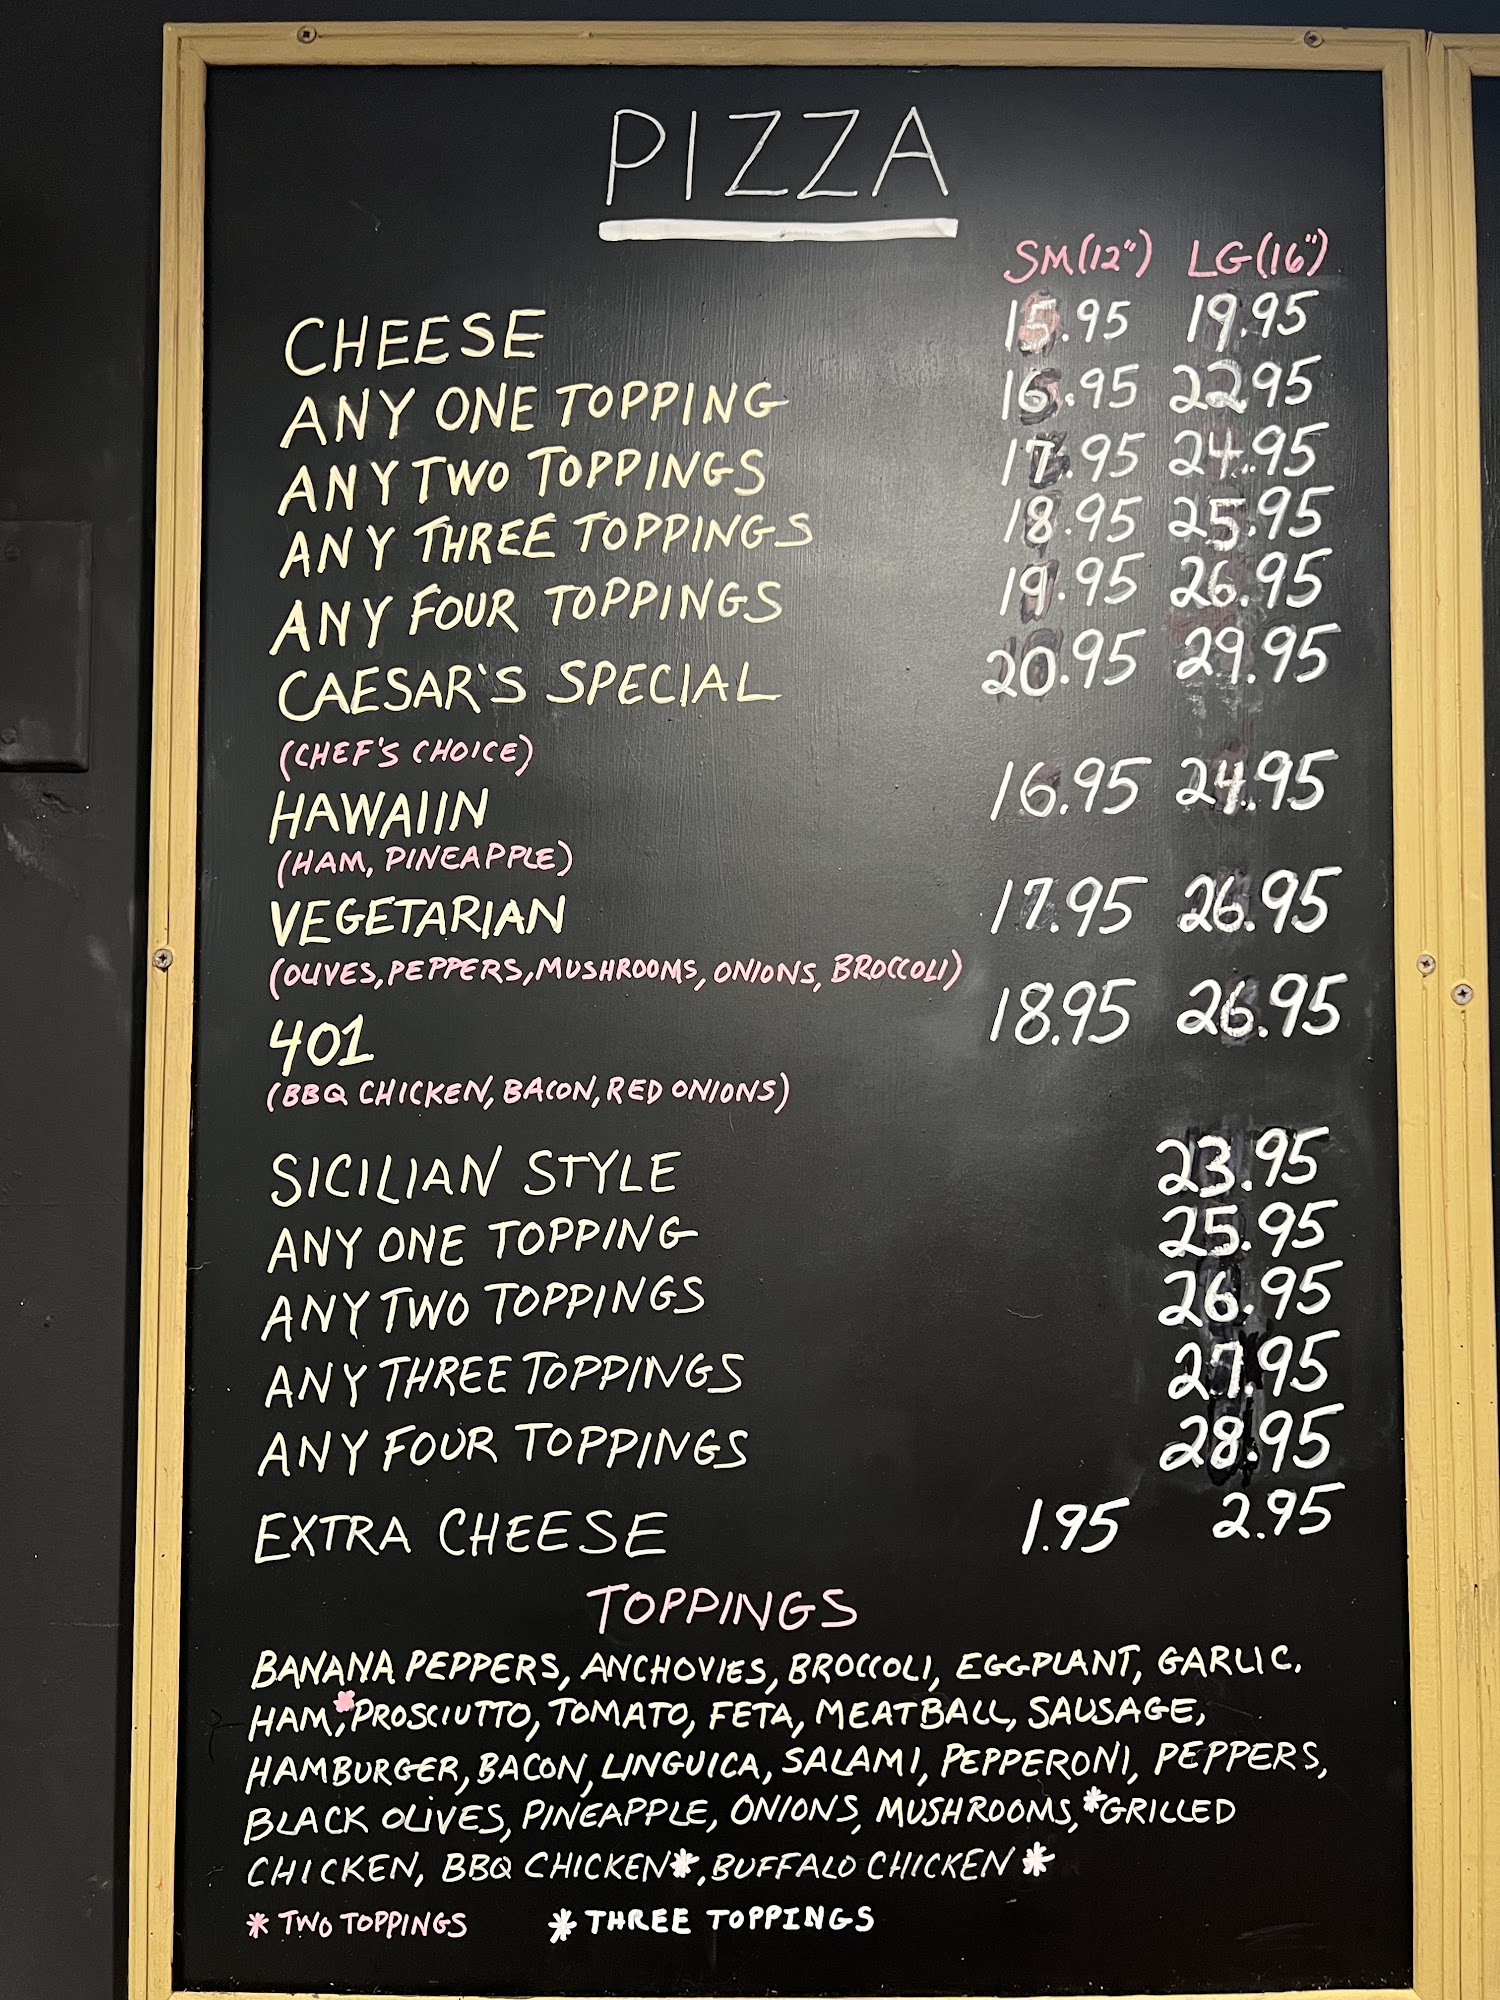 PIZZA
SM(12") LG(16")
CHEESE 15.95 19.95
ANY ONE TOPPING 16.95 22.95
ANY TWO TOPPINGS 17.95 24.95
ANY THREE TOPPINGS 18.95 25.95
ANY FOUR TOPPINGS 19.95 26.95
CAESAR'S SPECIAL 20.95 29.95
(CHEF'S CHOICE)
HAWAIIN 16.95 24.95
(HAM, PINEAPPLE)
VEGETARIAN 17.95 26.95
(OLIVES, PEPPERS, MUSHROOMS, ONIONS, BROCCOLI)
401 18.95 26.95
(BBQ CHICKEN, BACON, RED ONIONS)
SICILIAN STYLE 23.95
ANY ONE TOPPING 25.95
ANY TWO TOPPINGS 26.95
ANY THREE TOPPINGS 27.95
ANY FOUR TOPPINGS 28.95
EXTRA CHEESE 1.95 2.95
TOPPINGS
BANANA PEPPERS, ANCHOVIES, BROCCOLI, EGGPLANT, GARLIC.
HAM, *PROSCIUTTO, TOMATO, FETA, MEATBALL, SAUSAGE,
HAMBURGER, BACON, LINGUICA, SALAMI, PEPPERONI, PEPPERS,
BLACK OLIVES, PINEAPPLE, ONIONS, MUSHROOMS, *GRILLED
CHICKEN, BBQ CHICKEN*, BUFFALO CHICKEN *
* TWO TOPPINGS * THREE TOPPINGS